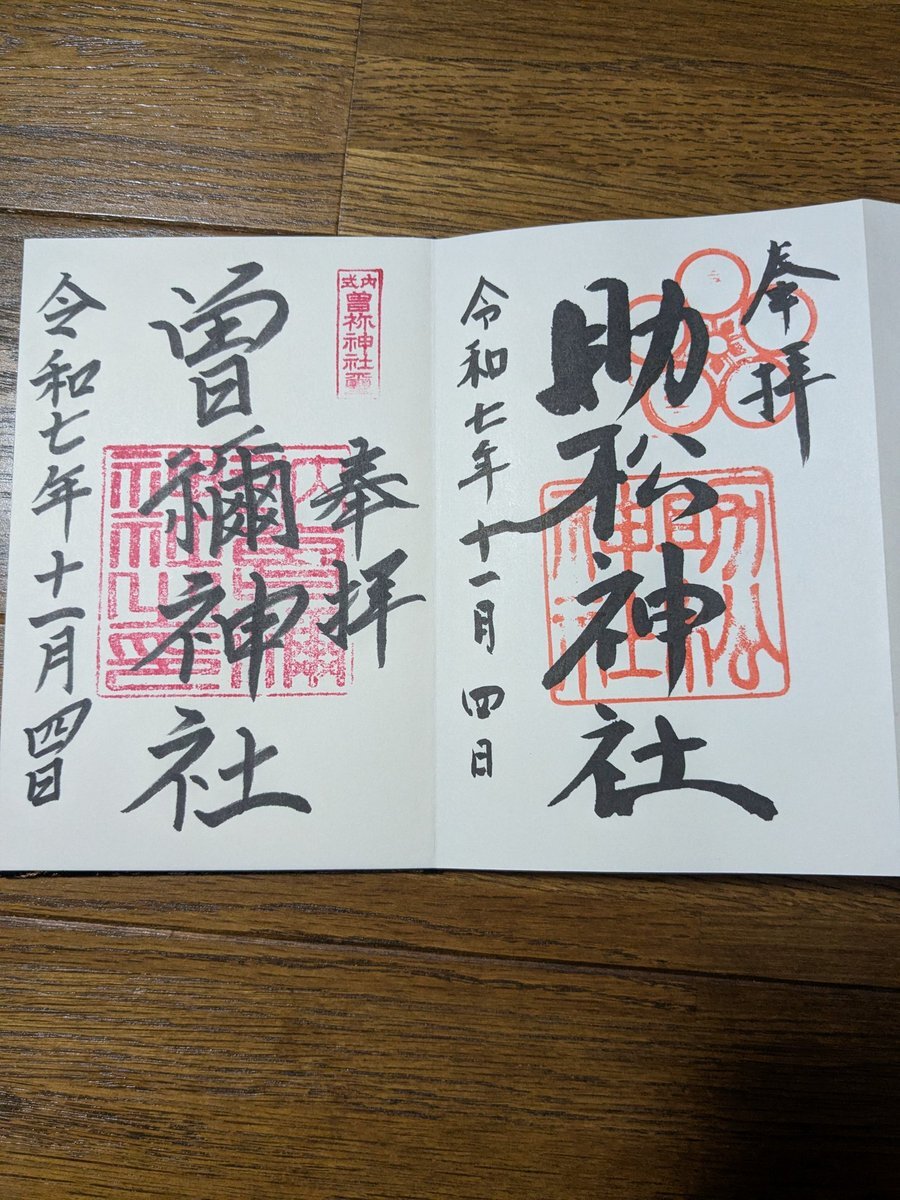 奉拝
助松神社
助松
神社
令和七年十一月四日
式内
曽祢神社
奉拝
曽禰神社
令和七年十一月四日